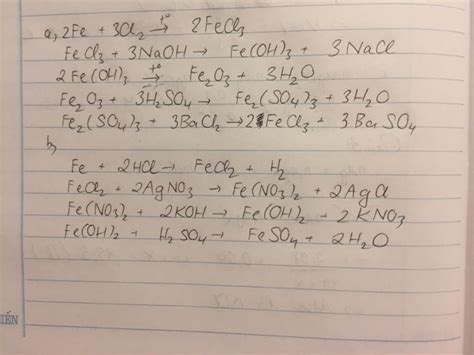 a, 2Fe + 3Cl₂ →t° 2FeCl₃
FeCl₃ + 3NaOH → Fe(OH)₃ + 3NaCl
2Fe(OH)₃ →t° Fe₂O₃ + 3H₂O
Fe₂O₃ + 3H₂SO₄ → Fe₂(SO₄)₃ + 3H₂O
Fe₂(SO₄)₃ + 3BaCl₂ → 2FeCl₃ + 3BaSO₄
b,
Fe + 2HCl → FeCl₂ + H₂
FeCl₂ + 2AgNO₃ → Fe(NO₃)₂ + 2AgCl
Fe(NO₃)₂ + 2KOH → Fe(OH)₂ + 2KNO₃
Fe(OH)₂ + H₂SO₄ → FeSO₄ + 2H₂O